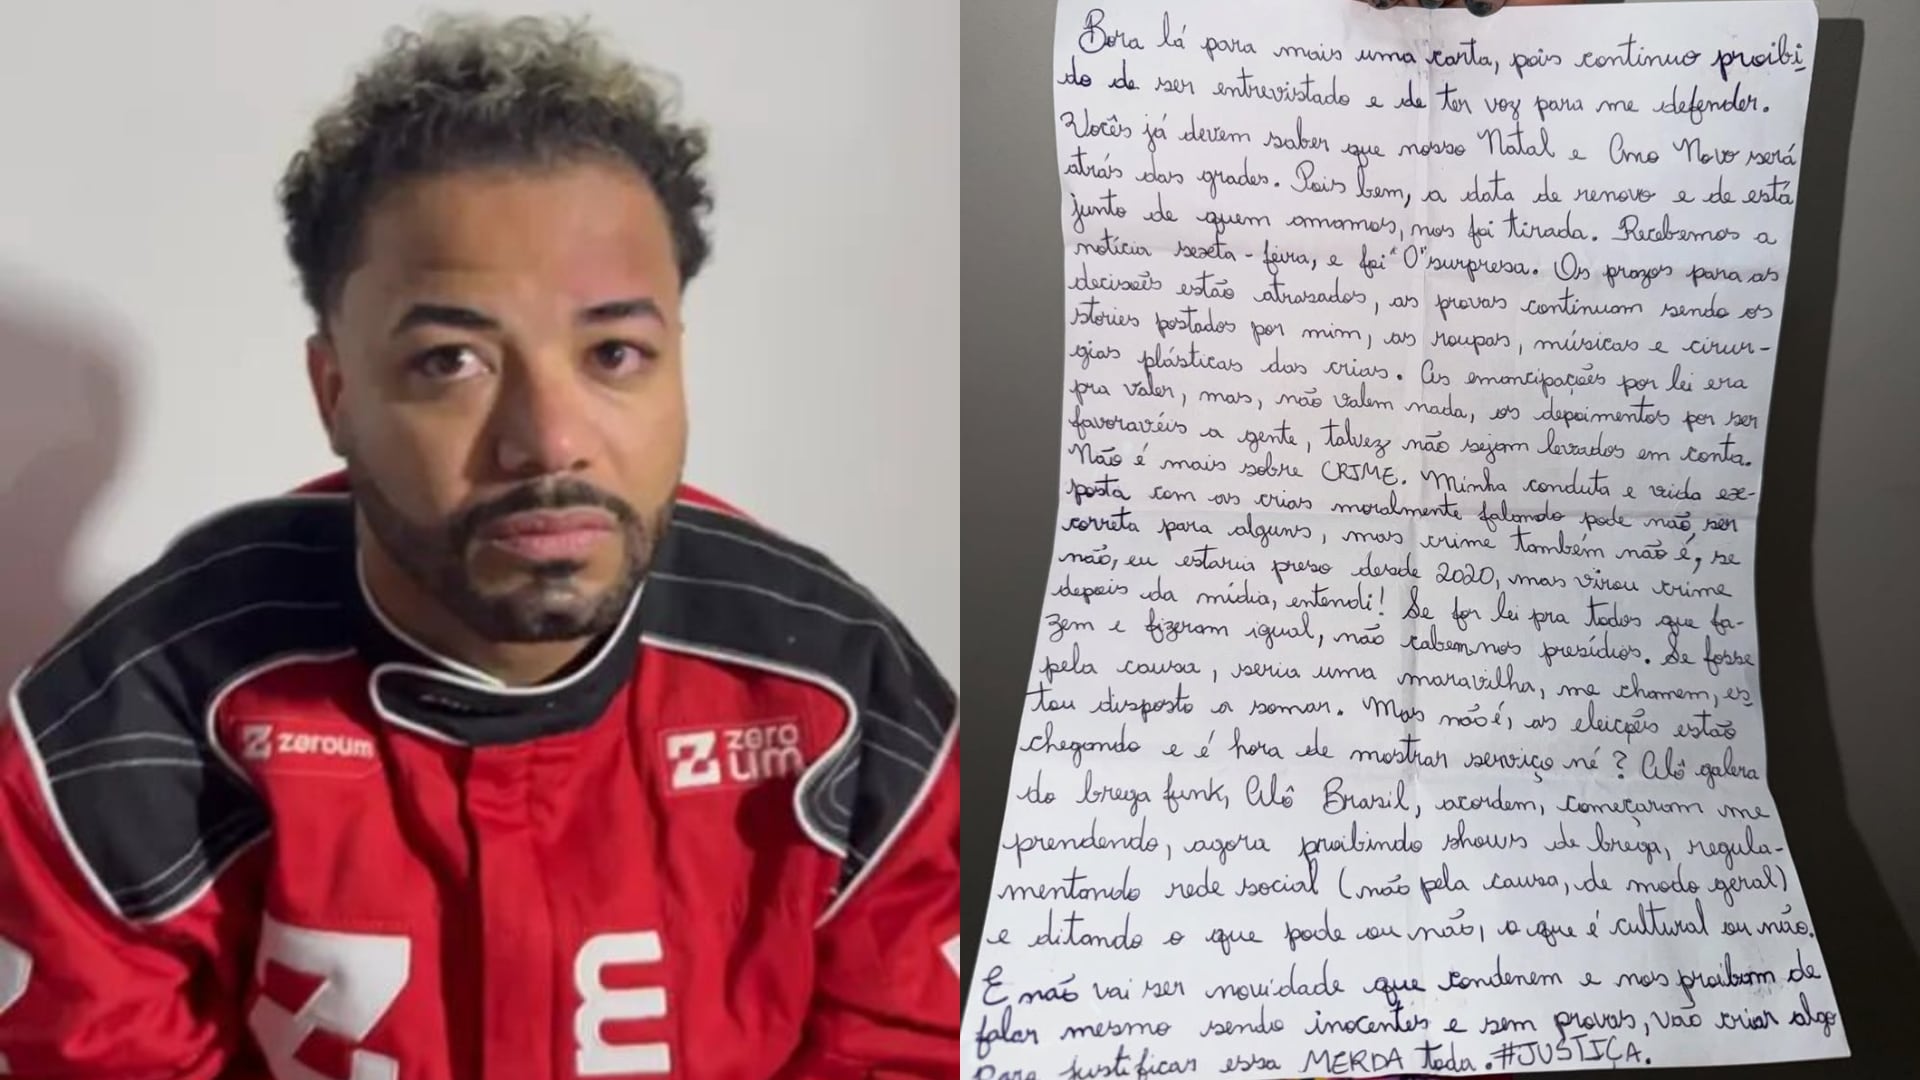 zeroum
zero
um
Bora lá para mais uma carta, pois continuo proibi
do de ser entrevistado e de ter voz para me defender.
Vocês já devem saber que nosso Natal e Ano Novo será
atrás das grades. Pois bem, a data de renovo e de está
junto de quem amamos, nos foi tirada. Recebemos a
notícia sexta-feira, e foi "O" surpresa. Os prazos para as
decisões estão atrasados, as provas continuam sendo os
stories postados por mim, as roupas, músicas e cirur-
gias plásticas das crias. As emancipações por lei era
pra valer, mas, não valem nada, os depoimentos por ser
favoravéis a gente, talvez não sejam levados em conta.
Não é mais sobre CRIME. Minha conduta e vida ex-
posta com as crias moralmente falando pode não ser
correta para alguns, mas crime também não é, se
não, eu estaria preso desde 2020, mas virou crime
depois da mídia, entendi! Se for lei pra todos que fa-
zem e fizeram igual, não cabem nos presídios. Se fosse
pela causa, seria uma maravilha, me chamem, es
tou disposto a somar. Mas não é, as eleições estão
chegando e é hora de mostrar serviço né? Alô galera
do brega funk, Alô Brasil, acordem, começaram me
prendendo, agora proibindo shows de brega, regula-
mentando rede social (não pela causa, de modo geral)
e ditando o que pode ou não, o que é cultural ou não.
E não vai ser novidade que condenem e nos proibam de
falar mesmo sendo inocentes e sem provas, vão criar algo
para justificar essa MERDA toda. #JUSTIÇA.